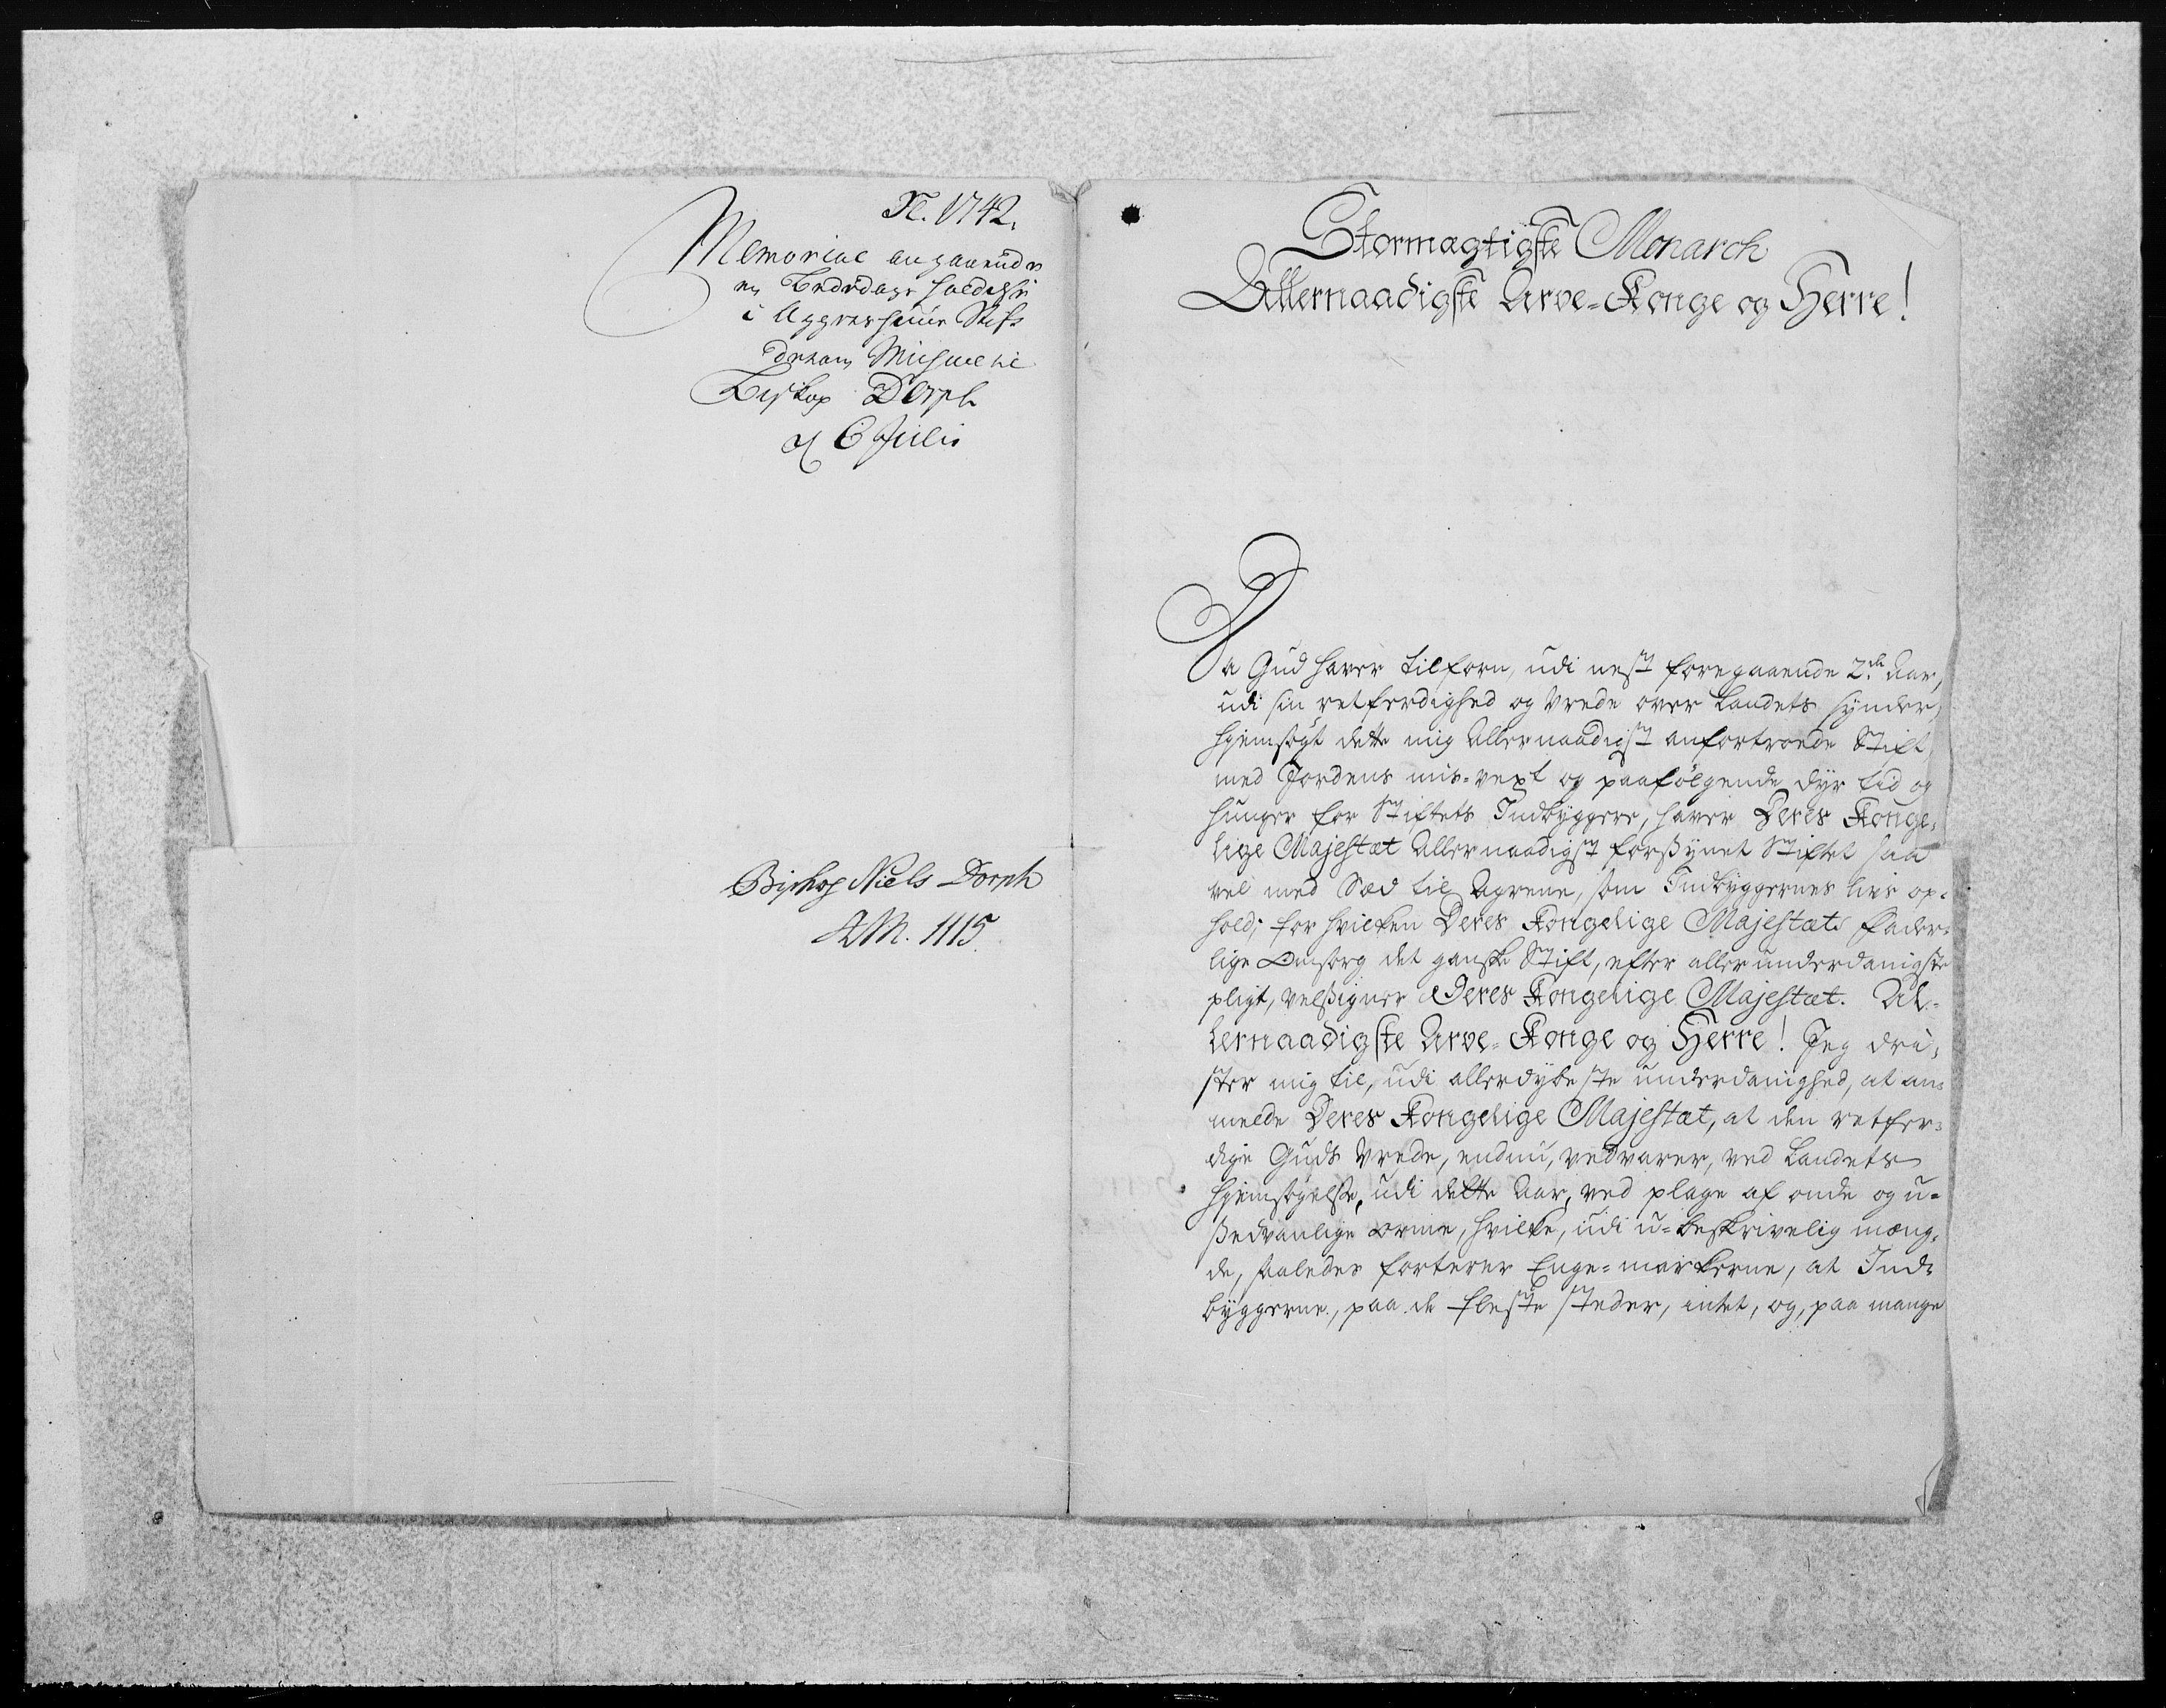 N. 1742.
Memorial angaaende
en Bededags holdelse
i Aggershuus Stift
Biskop Dorph
6 Julii
Bischop Niels Dorph
AM. 1115.
Stormægtigste Monarch
Allernaadigste Arve-Konge og Herre!
Da Gud haver tilforn, udi nest foregaaende 2de Aar,
udi sin retferdighed og Vrede over Landets synder,
hjemsøgt dette mig Allernaadigst anfortroede Stift,
med Jordens mis-vext og paafølgende dyr tid og
hunger for Stiftets Indbyggere, haver Deres Konge-
lige Majestæt Allernaadigst forsynet Stiftet saa
vel med Sæd til Agrene, som Indbyggernes livs op-
hold; for hvilken Deres Kongelige Majestæts fader-
lige Omsorg det ganske Stift, efter allerunderdanigste
pligt, velsigner Deres Kongelige Majestæt. Al-
lernaadigste Arve-Konge og Herre! Jeg dri-
ster mig til, udi allerdybeste underdanighed, at an-
melde Deres Kongelige Majestæt, at den retfer-
dige Guds Vrede, endnu, vedvarer, ved Landets
hjemsøgelse, udi dette Aar, ved plage af onde og u-
sedvanlige orme, hvilke, udi u-beskrivelig mæng-
de, saaledes forterer Enge-markerne, at Ind-
byggerne, paa de fleste steder, intet, og, paa mange